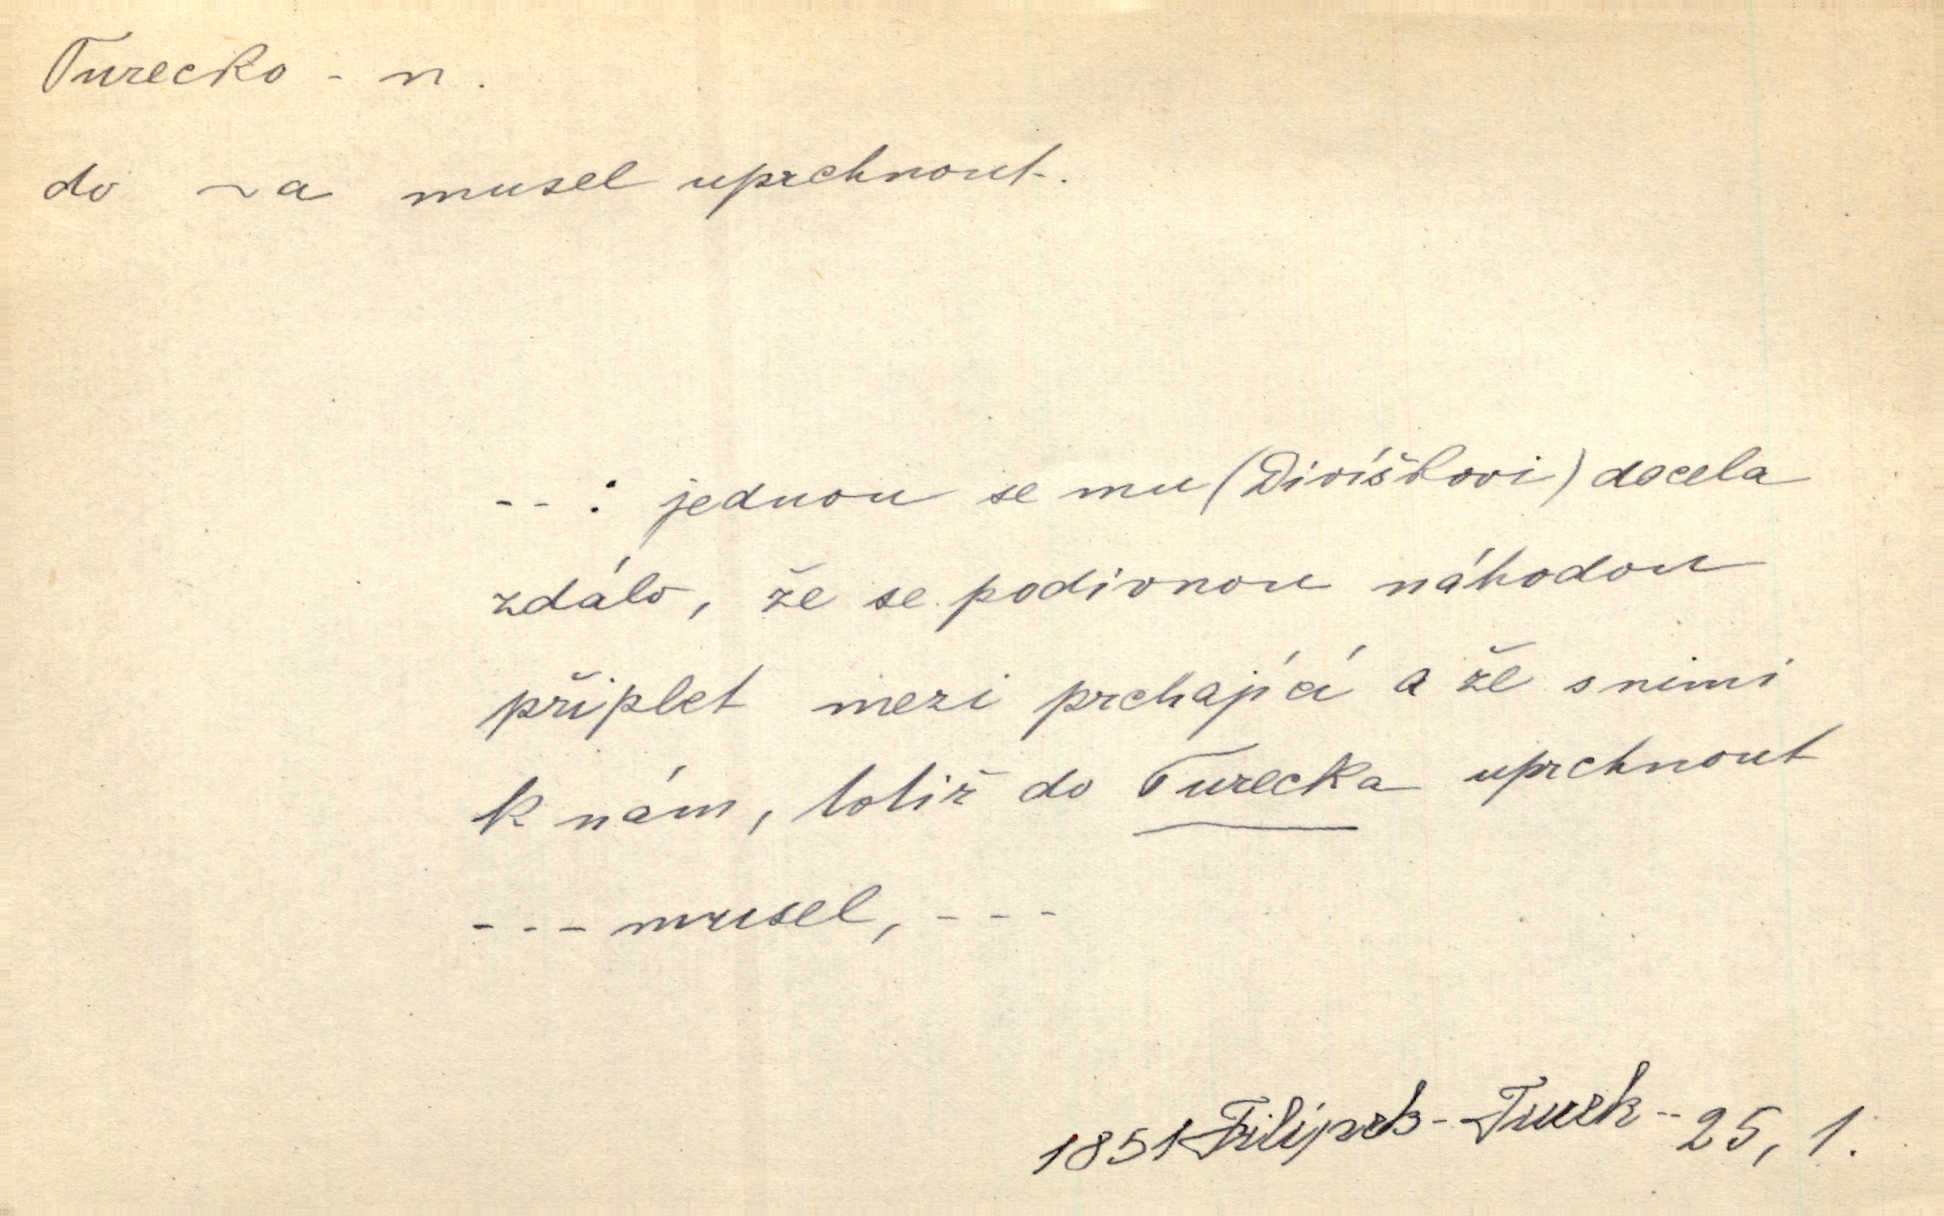 Turecko - n.
do ~a musel uprchnout.
-- : jednou se mu (Divíškovi) docela
zdálo, že se podivnou náhodou
připlet mezi prchající a že s nimi
k nám, totiž do Turecka uprchnout
--- musel, ---
1851 Filípek - Turek -- 25, 1.